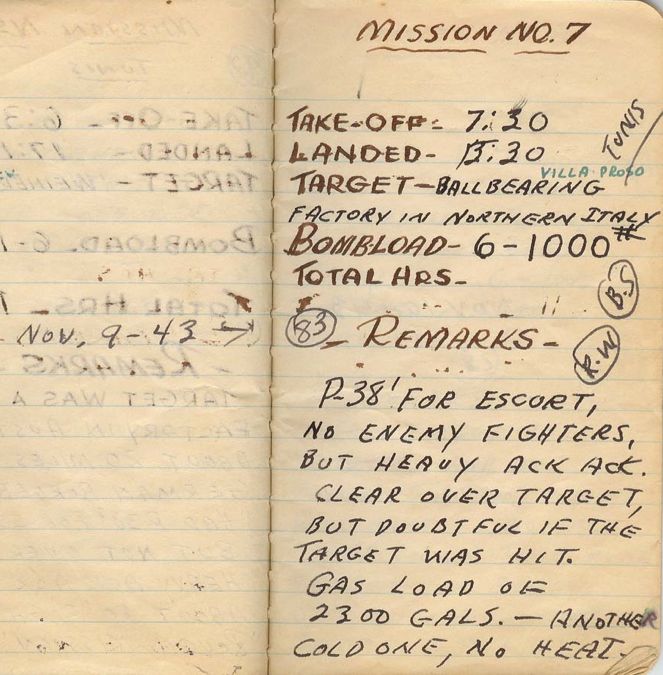 MISSION NO. 7
TAKE-OFF- 7:30
LANDED- 15:30
TUNIS
VILLA PROSO
TARGET-BALLBEARING
FACTORY IN NORTHERN ITALY
BOMBLOAD- 6-1000#
TOTAL HRS-
B.S
Nov, 9-43 →
83 - REMARKS -
R.W
P-38' FOR ESCORT,
NO ENEMY FIGHTERS,
BUT HEAVY ACK ACK.
CLEAR OVER TARGET,
BUT DOUBTFUL IF THE
TARGET WAS HIT.
GAS LOAD OF
2300 GALS. - ANOTHER
COLD ONE, NO HEAT.